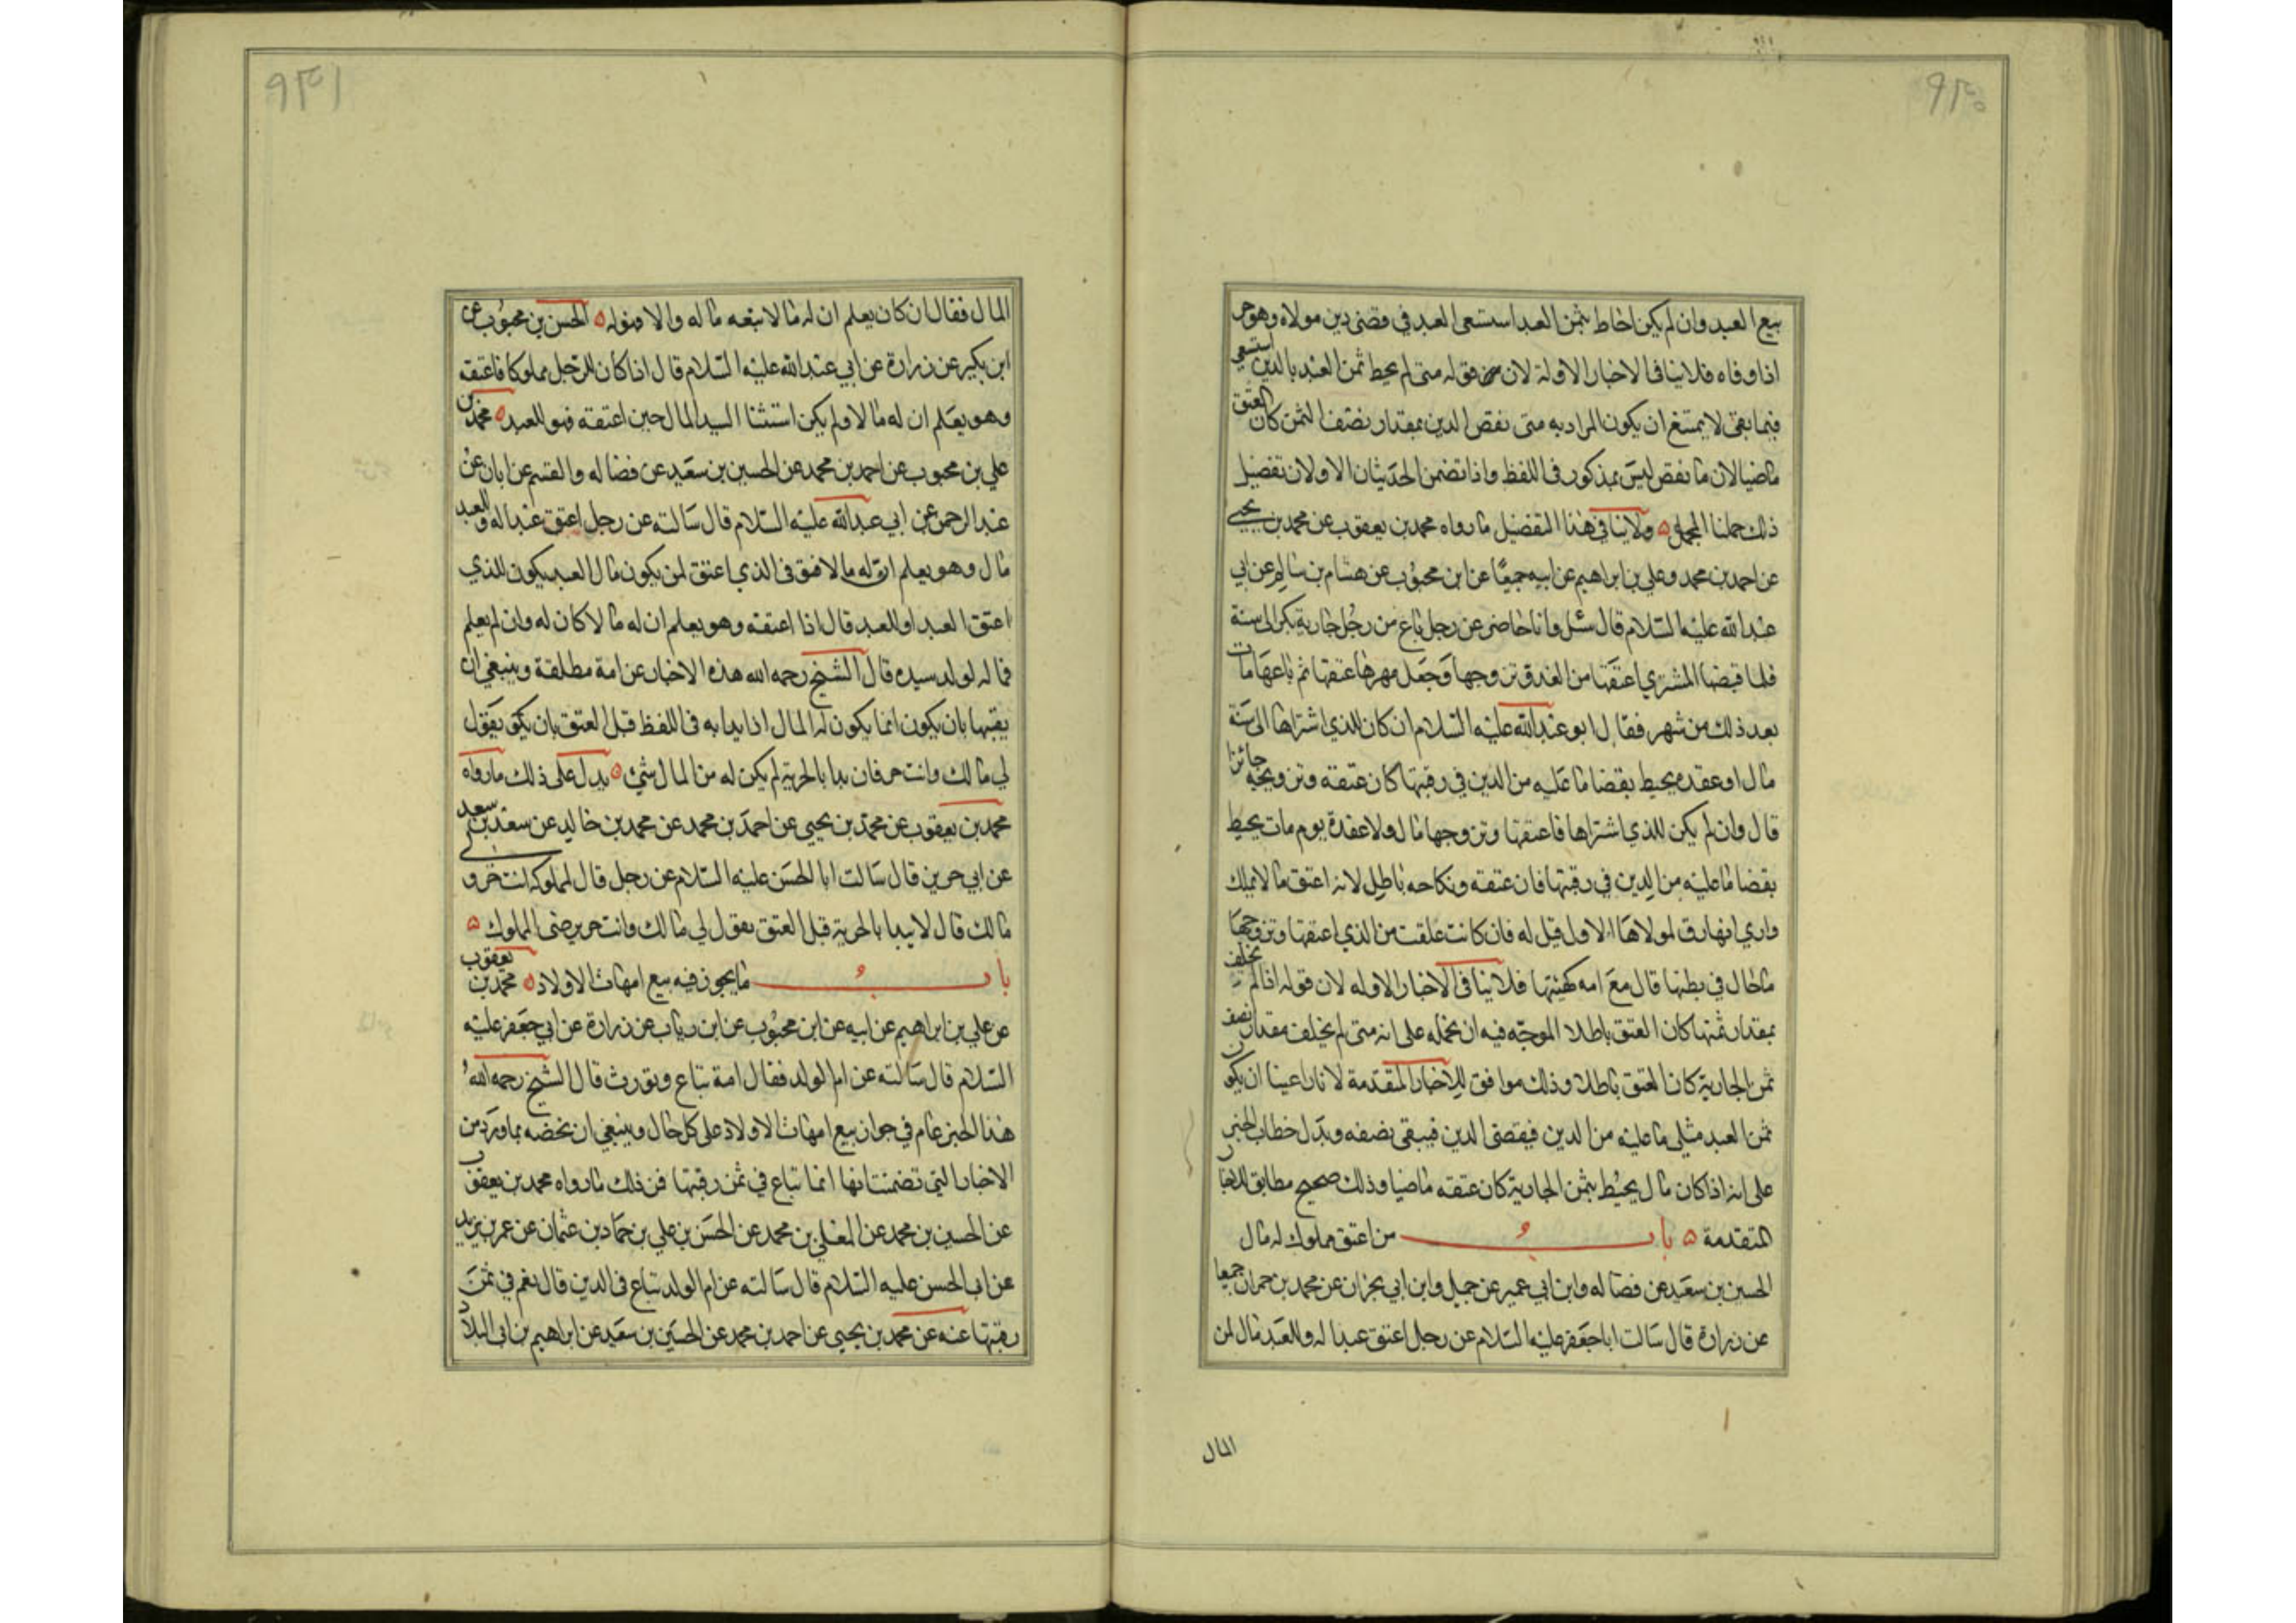 ٩٣٠
بيع العبد وان لم يكن احاط بثمن العبد استسعى العبد في قضى دين مولاه وهو حر
اذا وفاه فلا ينافى الاخبار الاولة لان قوله متى لم يحيط ثمن العبد بالدين استسعى
فيما بقى لا يمتنع ان يكون المراد به متى نقص الدين بمقدار نصف الثمن كان العتق
ماضيا لان ما نقص ليس بمذكور في اللفظ واذا تضمن الحديثان الاولان تفصيل
ذلك حملنا المجمل ولا ينافي هذا التفصيل ما رواه محمد بن يعقوب عن محمد بن يحيى
عن احمد بن محمد وعلي بن ابراهيم عن ابيه جميعا عن ابن محبوب عن هشام بن سالم عن ابي
عبد الله عليه السلام قال سئل وانا حاضر عن رجل باع من رجل جارية بكرا الى سنة
فلما قبضها المشتري اعتقها من الغد وتزوجها وجعل مهرها عتقها ثم باعها مات
بعد ذلك من شهر فقال ابو عبد الله عليه السلام ان كان للذي اشتراها الى سنة
مال او عقدة يحيط بقضا ما عليه من الدين في رقبتها كان عتقه وتزويجه جائزا
قال وان لم يكن للذي اشتراها فاعتقها وتزوجها مال ولا عقدة يوم مات يحيط
بقضا ما عليه من الدين في رقبتها فان عتقه ونكاحه باطل لانه اعتق ما لا يملك
وارى انها رق لمولاها الاول قيل له فان كانت علقت من الذي اعتقها وتزوجها
ما حال في بطنها قال مع امه كهيئتها فلا ينافى الاخبار الاوله لان قوله اذا لم يخلف
بمقدار ثمنها كان العتق باطلا الموجه فيه ان نحمله على انه متى لم يخلف مقدار نصف
ثمن الجارية كان العتق باطلا وذلك موافق للاخبار المتقدمة لانا راعينا ان يكون
ثمن العبد مثلى ما عليه من الدين فيقضى الدين فيبقى نصفه ويدل خطاب الخبر
على انه اذا كان مال يحيط بثمن الجارية كان عتقه ماضيا وذلك صحيح مطابق للاخبار
المتقدمة باب من اعتق مملوك له مال
الحسين بن سعيد عن فضاله وابن ابي عمير عن جميل وابن ابي نجران عن محمد بن حمران جميعا
عن زرارة قال سالت ابا جعفر عليه السلام عن رجل اعتق عبدا له وللعبد مال لمن
المال
٩٣١
المال فقال ان كان يعلم ان له مالا تبعه ماله والا فهو له الحسن بن محبوب عن
ابن بكير عن زرارة عن ابي عبد الله عليه السلام قال اذا كان للرجل مملوكا فاعتقه
وهو يعلم ان له مالا ولم يكن استثنا السيد المال حين اعتقه فهو للعبد محمد بن
علي بن محبوب عن احمد بن محمد عن الحسين بن سعيد عن فضاله والقسم عن ابان عن
عبد الرحمن عن ابي عبد الله عليه السلام قال سالته عن رجل اعتق عبدا له وللعبد
مال وهو يعلم ان له مالا فتوفى الذي اعتق لمن يكون مال العبد يكون للذي
اعتق العبد او للعبد قال اذا اعتقه وهو يعلم ان له مالا كان له وان لم يعلم
فماله لولد سيده قال الشيخ رحمه الله هذه الاخبار عن امة مطلقة وينبغي ان
يقيها بان يكون انما يكون له المال اذا بدا به في اللفظ قبل العتق بان يكون يقول
لي مالك وانت حر فان بدا بالحرية لم يكن له من المال شئ يدل على ذلك ما رواه
محمد بن يعقوب عن محمد بن يحيى عن احمد بن محمد عن محمد بن خالد عن سعد بن سعد
عن ابي حرير قال سالت ابا الحسن عليه السلام عن رجل قال لمملوكه انت حر ولى
مالك قال لا يبدا بالحرية قبل العتق يقول لي مالك وانت حر برضى المملوك
باب ما يجوز فيه بيع امهات الاولاد محمد بن يعقوب
عن علي بن ابراهيم عن ابيه عن ابن محبوب عن ابن رياب عن زرارة عن ابي جعفر عليه
السلام قال سالته عن ام الولد فقال امة تباع وتورث قال الشيخ رحمه الله
هذا الخبر عام في جواز بيع امهات الاولاد على كل حال وينبغي ان نخصه بما ورد من
الاخبار التي تضمنت انها انما تباع في ثمن رقبتها فمن ذلك ما رواه محمد بن يعقوب
عن الحسين بن محمد عن المعلى بن محمد عن الحسن بن علي بن حماد بن عثمان عن عمر بن يزيد
عن ابى الحسن عليه السلام قال سالته عن ام الولد تباع في الدين قال نعم في ثمن
رقبتها عنه عن محمد بن يحيى عن احمد بن محمد عن الحسين بن سعيد عن ابراهيم بن ابى البلاد